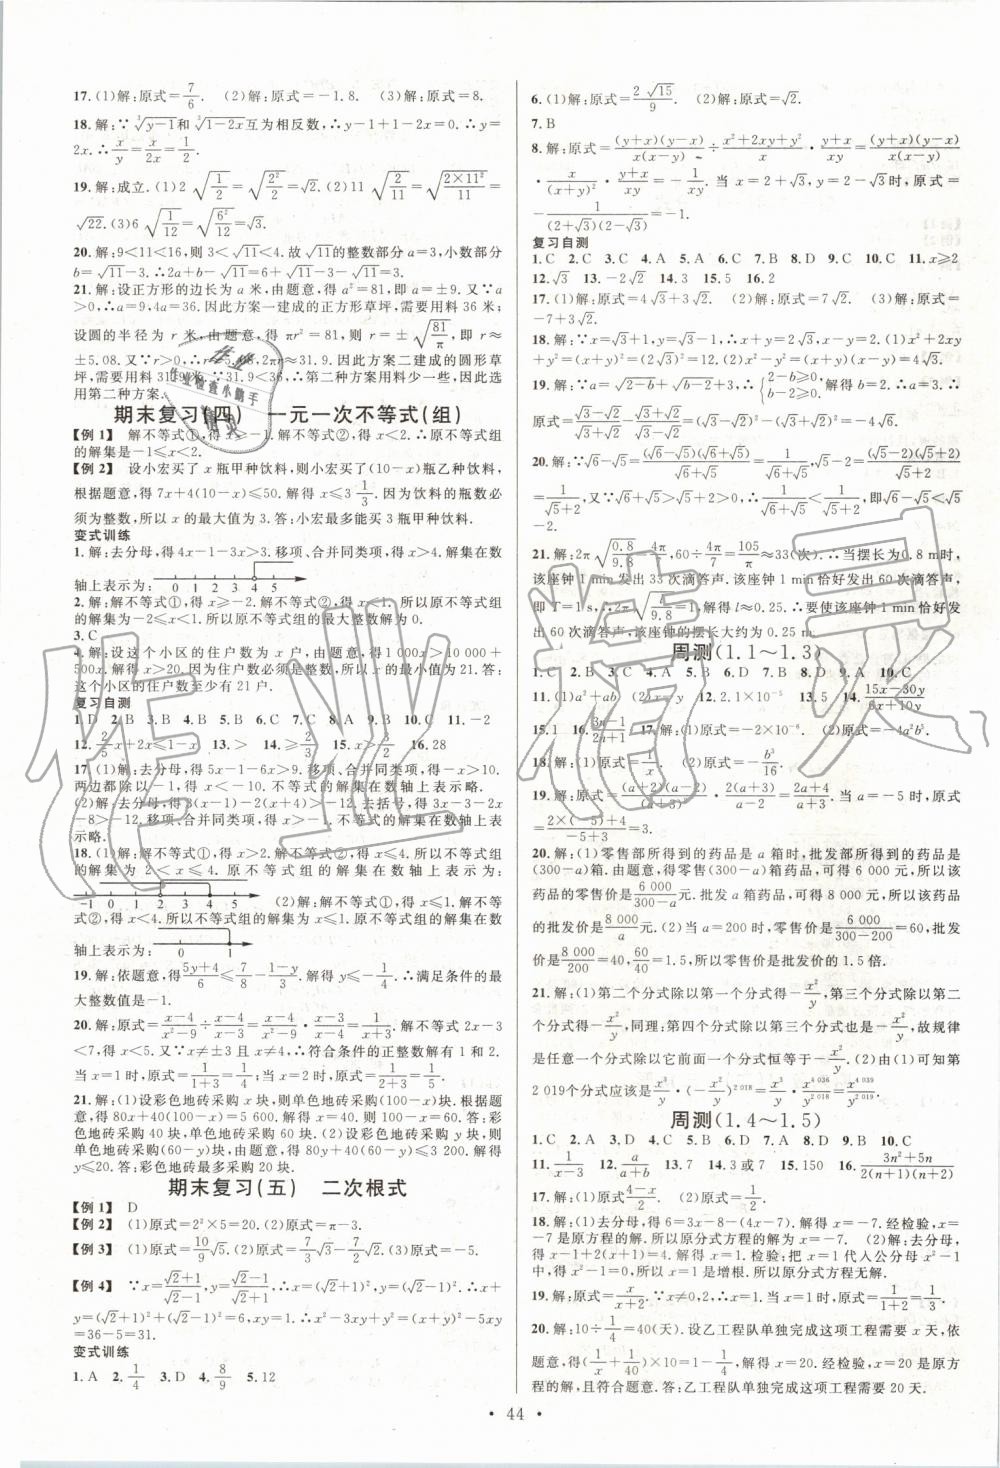 17. (1)解:原式=7/6. (2)解:原式=-1.8. (3)解:原式=8.
18. 解:∵∛(y-1)和∛(1-2x)互为相反数,∴y-1+1-2x=0.∴y=
2x.∴x/y=x/2x=1/2.
19. 解:成立.(1)2√(1/2)=√(2²/2)=√2.(2)11√(2/11)=√(2×11²/11)=
√22.(3)6√(1/12)=√(6²/12)=√3.
20. 解:9<11<16,则3<√11<4.故√11的整数部分a=3,小数部分
b=√11-3.∴2a+b=6+√11-3=3+√11.
21. 解:设正方形的边长为a米,由题意,得a²=81,即a=±9.又∵a
>0,∴a=9,4a=36.因此方案一建成的正方形草坪,需要用料36米;
设圆的半径为r米,由题意,得πr²=81,则r=±√(81/π),即r≈
±5.08.又∵r>0,∴r≈5.08,2πr≈31.9.因此方案二建成的圆形草
坪,需要用料31.9米.∵31.9<36,∴第二种方案用料少一些,因此选
用第二种方案.
期末复习(四) 一元一次不等式(组)
【例1】 解不等式①,得x≥-1.解不等式②,得x<2.∴原不等式组
的解集是-1≤x<2.
【例2】 设小宏买了x瓶甲种饮料,则买了(10-x)瓶乙种饮料,
根据题意,得7x+4(10-x)≤50.解得x≤3 1/3.因为饮料的瓶数必
须为整数,所以x的最大值为3.答:小宏最多能买3瓶甲种饮料.
变式训练
1. 解:去分母,得4x-1-3x>3.移项、合并同类项,得x>4.解集在数
轴上表示为: -1 0 1 2 3 4 5
2. 解:解不等式①,得x≥-2.解不等式②,得x<1.所以原不等式组
的解集为-2≤x<1.所以不等式组的最大整数解为0.
3. C
4. 解:设这个小区的住户数为x户,由题意,得1 000x>10 000+
500x.解得x>20.∵住户数必须是整数,∴x的最小值为21.答:
这个小区的住户数至少有21户.
复习自测
1. D 2. B 3. B 4. B 5. C 6. B 7. C 8. A 9. B 10. C 11. -2
12. 2/5x+2x≤1-x 13. > 14. ≥3 15. x>3/2 16. 28
17. (1)解:去分母,得5x-1-6x>9.移项、合并同类项,得-x>10.
两边都除以-1,得x<-10.不等式的解集在数轴上表示略.
(2)解:去分母,得3(x-1)-2(x+4)>-12.去括号,得3x-3-2x
-8>-12.移项、合并同类项,得x>-1.不等式的解集在数轴上表
示略.
18. (1)解:解不等式①,得x>2.解不等式②,得x≤4.原不等式组
的解集为2<x≤4.原不等式组的解集在数轴上表示为:
-1 0 1 2 3 4 5 (2)解:解不等式①,得x<1.解不等
式②,得x≤1.所以不等式组的解集为x<1.原不等式组的解集在数
轴上表示为: 0 1
19. 解:依题意,得(5y+4)/6≤7/8-(1-y)/3.解得y≤-1/4.∴满足条件的最
大整数值是-1.
20. 解:原式=(x-4)/(x²-9)÷(x-4)/(x-3)=(x-4)/(x²-9)·(x-3)/(x-4)=1/(x+3).解不等式2x-3
<7,得x<5.又∵x≠±3且x≠4,∴符合条件的正整数解有1和2.
当x=1时,原式=1/(1+3)=1/4;当x=2时,原式=1/(2+3)=1/5.
21. 解:(1)设彩色地砖采购x块,则单色地砖采购(100-x)块.根据题
意,得80x+40(100-x)=5 600.解得x=40.则100-x=60.答:彩
色地砖采购40块,单色地砖采购60块.(2)设彩色地砖采购y块,则
单色地砖采购(60-y)块,由题意,得80y+40(60-y)≤3 200.解得
y≤20.答:彩色地砖最多采购20块.
期末复习(五) 二次根式
【例1】 D
【例2】 (1)原式=2²×5=20.(2)原式=π-3.
【例3】 (1)原式=10/9√5.(2)原式=7/3√3-7/2√2.(3)原式=-5.
【例4】 ∵x=(√2+1)/(√2-1),y=(√2-1)/(√2+1),∴x=(√2+1)²,y=(√2-1)².∴x+
y=(√2+1)²+(√2-1)²=6,xy=1.∴x²-3xy+y²=(x+y)²-5xy
=36-5=31.
变式训练
1. A 2. 1/4 3. D 4. 8/9 5. 12
6. (1)解:原式=2√15/9. (2)解:原式=√2.
7. B
8. 解:原式=(y+x)(y-x)/x(x-y)÷(x²+2xy+y²)/x·(y+x)/xy=(y+x)(y-x)/x(x-y)
·x/(x+y)²·(y+x)/xy=-1/xy.当x=2+√3,y=2-√3时,原式=
-1/((2+√3)(2-√3))=-1.
复习自测
1. C 2. C 3. C 4. A 5. A 6. C 7. B 8. D 9. D 10. C 11. x≥2
12. √3 13. -2√2 14. 3 15. 5 16. 2
17. (1)解:原式=4√3+3√2. (2)解:原式=7√2. (3)解:原式=
-7+3√2.
18. 解:∵x=√3+1,y=√3-1,∴x+y=2√3,x-y=2.(1)x²+2xy
+y²=(x+y)²=(2√3)²=12.(2)x²-y²=(x+y)(x-y)=4√3.
19. 解:∵a=√(2-b)+√(b-2)+3,∴{2-b≥0, b-2≥0.解得b=2.∴a=3.
20. 解:∵√6-√5=(√6-√5)(√6+√5)/(√6+√5)=1/(√6+√5),√5-2=(√5-2)(√5+2)/(√5+2)
=1/(√5+2),又∵√6+√5>√5+2,∴1/(√6+√5)<1/(√5+2),即√6-√5<√5
-2.
21. 解:2π√(0.8/9.8)=4π/7,60÷4π/7=105/π≈33(次).∴当摆长为0.8 m时,
该座钟1 min发出33次滴答声.∵该座钟1 min恰好发出60次滴答声,
即T=1 s,∴2π√(l/9.8)=1.解得l≈0.25.∴要使该座钟1 min恰好发
出60次滴答声,该座钟的摆长大约为0.25 m.
周测(1.1～1.3)
1. C 2. C 3. A 4. A 5. B 6. D 7. C 8. B 9. D 10. C
11. (1)a²+ab (2)x 12. 2.1×10⁻⁵ 13. 5 14. (15x-30y)/(6x+10y)
15. 1 16. (3n-1)/(2n+1) 17. 解:(1)原式=-2×10⁻⁶. (2)原式=-4a²b⁵.
18. 解:(1)原式=1/x. (2)原式=-b³/16.
19. 解:原式=
(2×(-5)+4)/(-5+3)=3.
20. 解:(1)零售部所得到的药品是a箱时,批发部所得到的药品是
(300-a)箱.由题意,得零售部所得到的药品可得6 000元,所以该药
品的零售价是6 000/(300-a)元.批发a箱药品,可得8 000元,所以该药品
的批发价是8 000/a元.(2)当a=200时,零售价是6 000/(300-200)=60,批
发价是8 000/200=40,60/40=1.5,所以该药品的零售价是批发价的1.5倍.
21. 解:(1)第二个分式除以第一个分式得-x²/y,第三个分式除以第二
个分式得-x²/y,同理:第四个分式除以第三个分式也是-x²/y,故规律
是任意一个分式除以它前面一个分式恒等于-x²/y.(2)由(1)可知第
2 019个分式应该是x³/y·(-x²/y)²⁰¹⁸=x³/y·x⁴⁰³⁶/y²⁰¹⁸=x⁴⁰³⁹/y²⁰¹⁹.
周测(1.4～1.5)
1. C 2. A 3. D 4. C 5. D 6. D 7. A 8. D 9. B 10. C
11. 1/(x-3) 12. a/(a+b) 13. 7 14. 2或3 15. 7/2 16. (3n²+5n)/(2(n+1)(n+2))
17. 解:(1)原式=(4-x)/2. (2)原式=1/2.
18. 解:(1)去分母,得6=3x-8-(4x-7).解得x=-7.经检验,x=
-7是原方程的解.所以原分式方程的解为x=-7.(2)解:去分母,
得x-1+2(x+1)=4.解得x=1.检验:把x=1代入公分母x²-1
中,得x²-1=0,∴x=1是增根.∴原分式方程无解.
19. 解:原式=x/(x+2).∵x≠0,2,∴x=1.当x=1时,原式=1/(1+2)=1/3.
20. 解:10÷1/4=40(天).设乙工程队单独完成这项工程需要x天,依
题意,得(1/x+1/40)×10=1-1/4-1/40×10.解得x=20.经检验,x=20是原方
程的解,且符合题意.答:乙工程队单独完成这项工程需要20天.
• 44 •
作业精灵